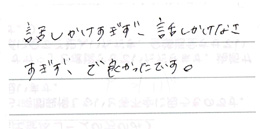 話しかけすぎず、話しかけなさ
すぎず、で良かったです。